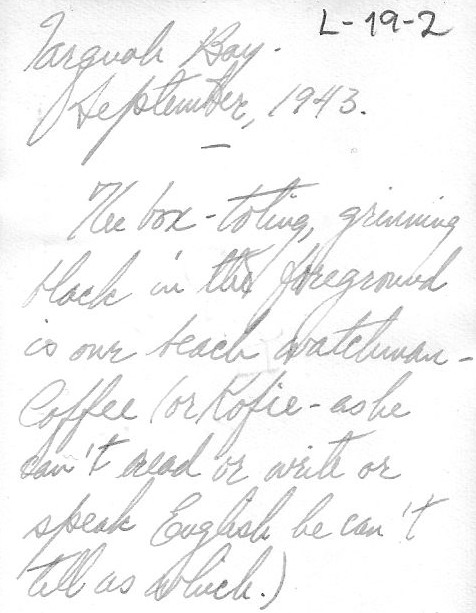 L-19-2
Tarquah Bay.
September, 1943.
—
The box-toting, grinning
black in the foreground
is our beach watchman-
Coffee (or Kofie - as he
can't read or write or
speak English he can't
tell us which.)